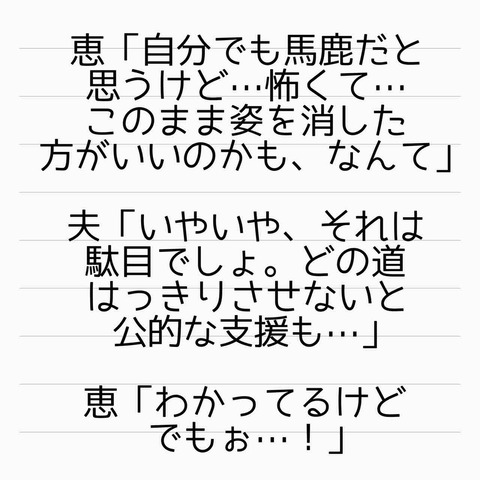 恵「自分でも馬鹿だと
思うけど…怖くて…
このまま姿を消した
方がいいのかも、なんて」
夫「いやいや、それは
駄目でしょ。どの道
はっきりさせないと
公的な支援も…」
恵「わかってるけど
でもぉ…！」